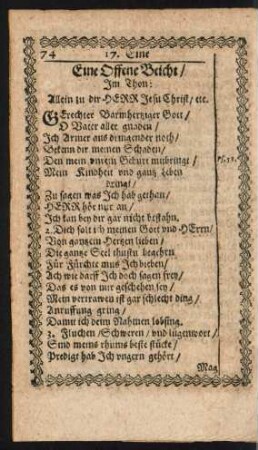 74 17. Eine
Eine Offene Beicht /
Im Thon:
Allein zu dir HERR Jesu Christ / etc.
GErechter Barmhertziger Gott /
O Vater aller gnaden /
Ich Armer aus dringender noth /
Bekenn dir meinen Schaden /
Den mein Geburt mitbringt / Ps. 51.
Mein Kindheit vnd gantz Leben
dringt /
Zu sagen was Ich hab gethan /
HERR hör nur an /
Ich kan bey dir gar nicht bestahn.
2. Dich solt ich meinen Gott vnd HErrn /
Von gantzem Hertzen lieben /
Die gantze Seel thustu begehrn
Für Fürchte mus Ich bieben /
Ach wie darff Ich doch sagen frey /
Das es von mir geschehen sey /
Mein vertrawen ist gar schlecht ding /
Anruffung gring /
Damit ich deim Nahmen lobsing.
3. Fluchen / Schweren / vnd lügenwort /
Sind meins rhums beste stücke /
Predigt hab Ich vngern gehört /
Mag